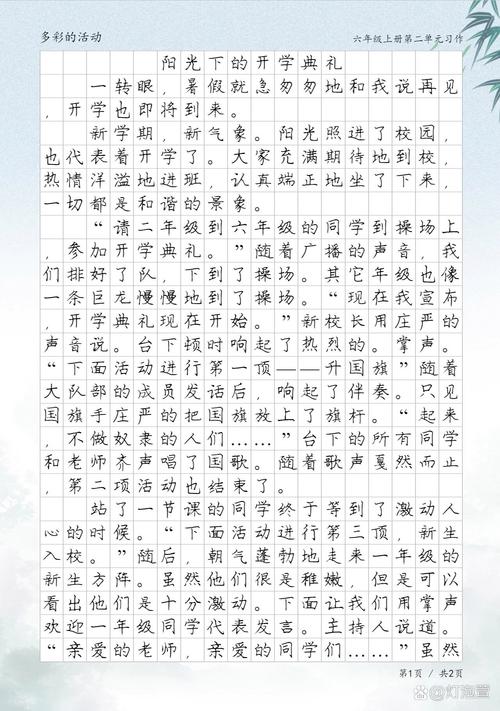 多彩的活动
六年级上册第二单元习作
阳光下的开学典礼
一转眼，暑假就急匆匆地和我说再见
，开学也即将到来。
新学期，新气象。阳光照进了校园，
也代表着开学了。大家充满期待地到校，
热情洋溢地进班，认真端正地坐了下来，
一切都是和谐的景象。
“请二年级到六年级的同学到操场上
，参加开学典礼。”随着广播的声音，我
们排好了队，下到了操场。其它年级也像
一条巨龙慢慢地到了操场。“现在我宣布
，开学典礼现在开始。”新校长用庄严的
声音说。台下顿时响起了热烈的。掌声。
“下面活动进行第一顶——升国旗”随着
大队部的成员发话后，响起了伴奏。只见
国旗手庄严的把国旗放上了旗杆。“起来
，不做奴隶的人们……”台下的所有同学
和老师齐声唱了国歌。随着歌声戛然而止
，第二项活动也结束了。
站了一节课的同学终于等到了激动人
心的时候。“下面活动进行第三顶，新生
入校。”随后，朝气蓬勃地走来一年级的
新生方阵。虽然他们很是稚嫩，但是可以
看出他们是十分激动。下面让我们用掌声
欢迎一年级同学代表发言。主持人说道。
“亲爱的老师，亲爱的同学们……”虽然
第1页 / 共2页
@灯泡萱